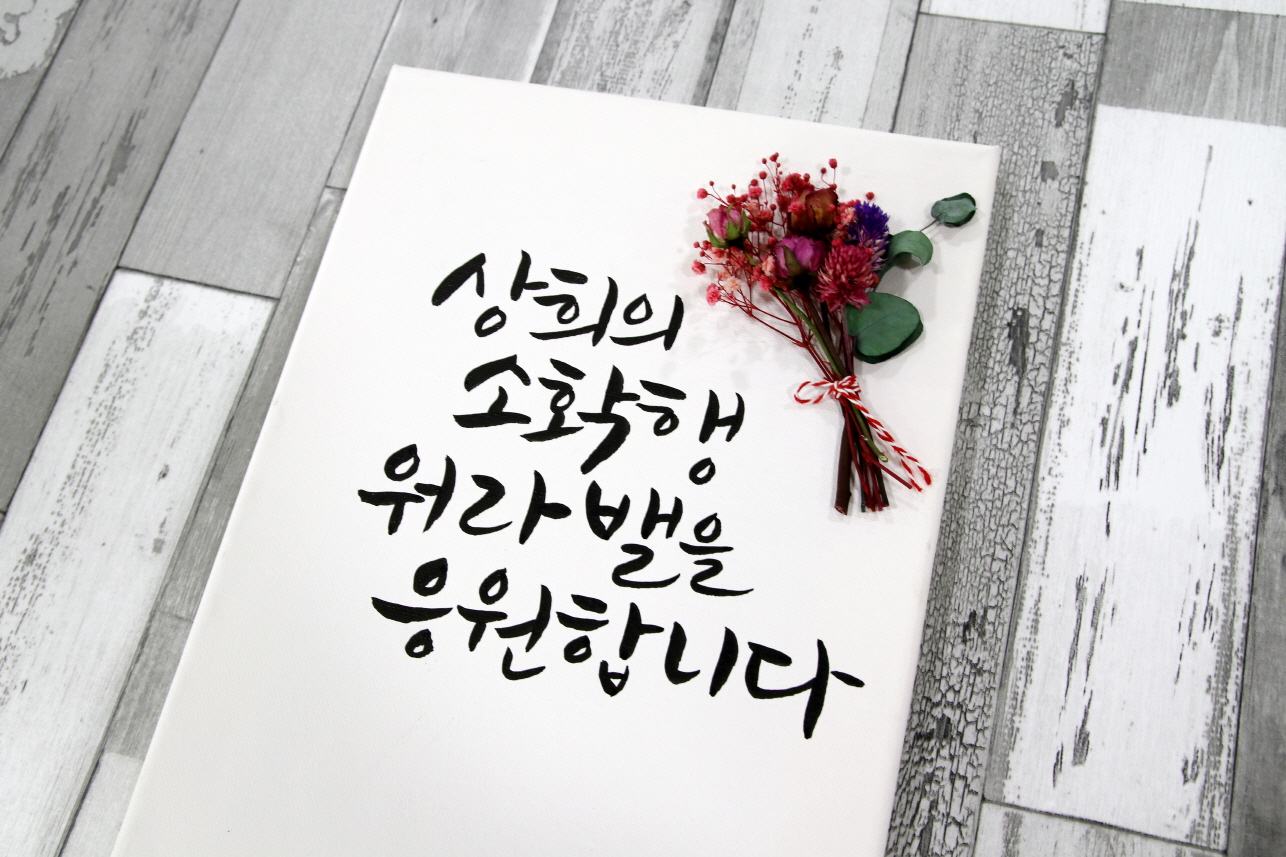 상희의
소확행
워라밸을
응원합니다